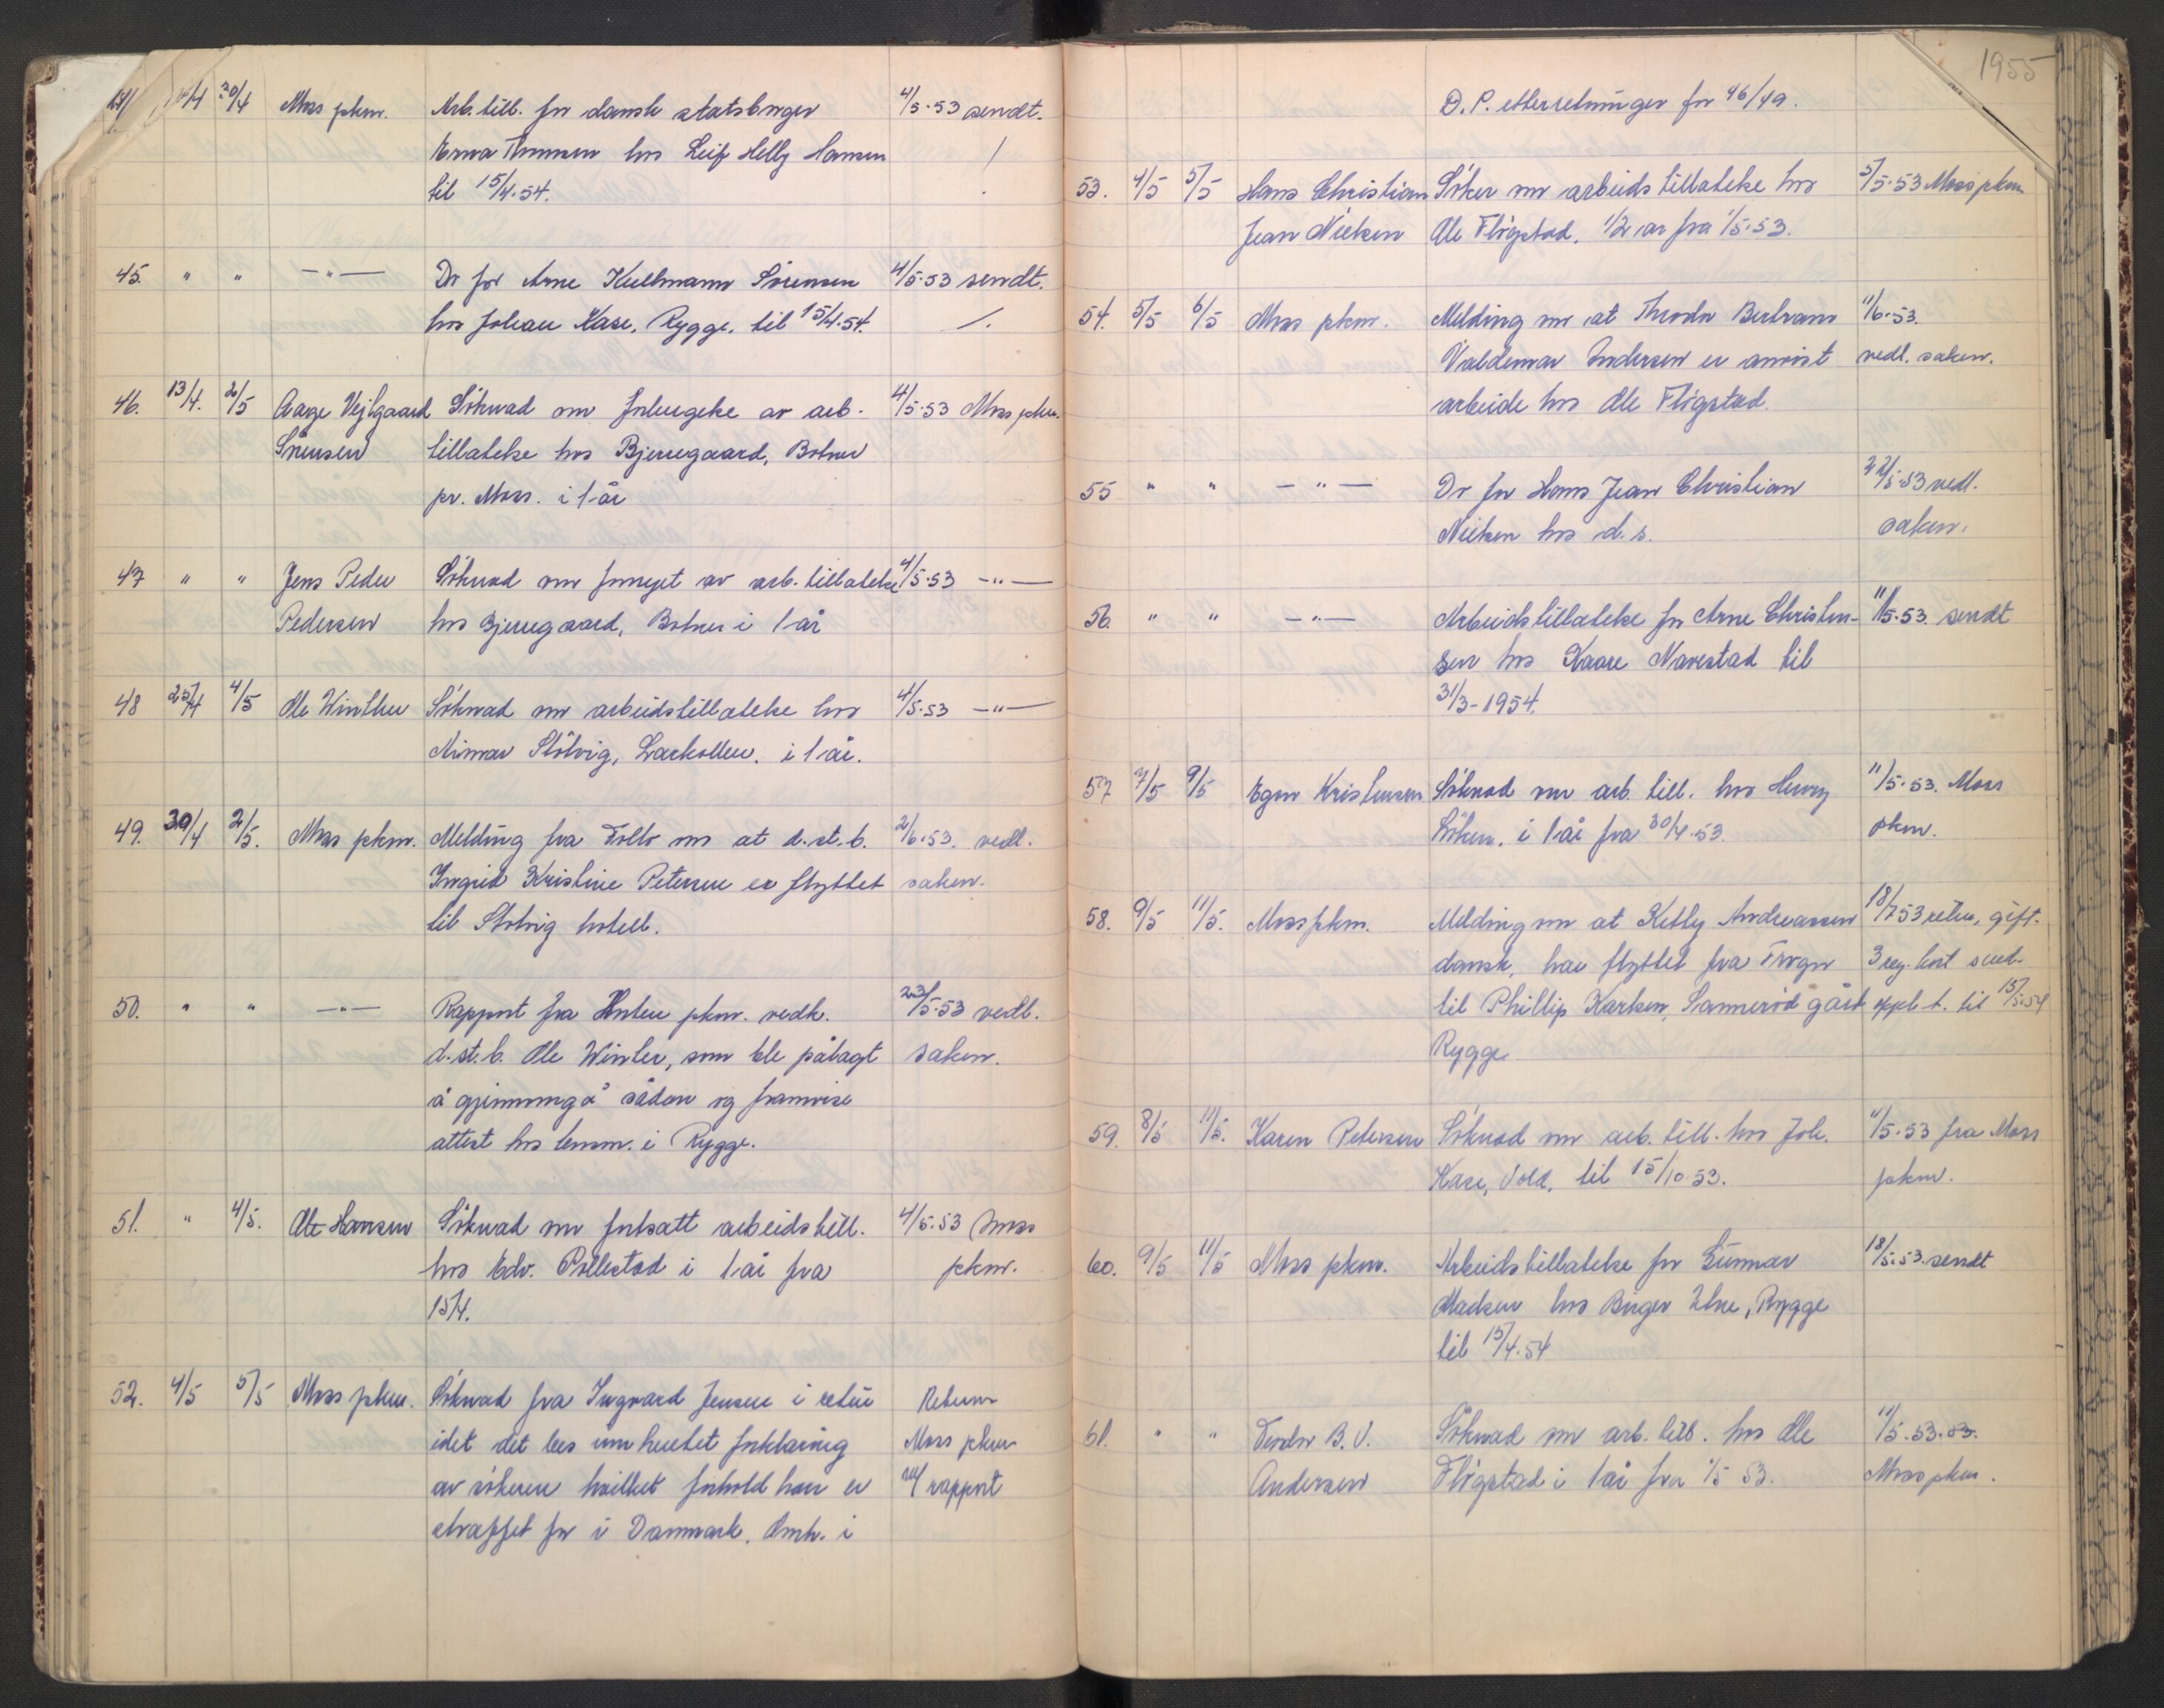 20/4 Moss pkm. Arb. till. for dansk statsborger 4/5-53 sendt.
Erna Thomsen hos Leif Helly Hansen /
til 15/4-54.
45. " " —"— Do for Arne Kullmann Sörensen 4/5-53 sendt.
hos Johan Kase, Rygge. til 15/4-54. /.
46. 13/4. 2/5 Aage Vejlgaard Söknad om forlengelse av arb. 4/5-53 Moss pkm.
Sörensen tillatelse hos Bjerregaard, Botner
pr. Moss. i 1 år
47 " " Jens Peder Söknad om fornyet av arb. tillatelse 4/5-53 —"—
Pedersen hos Bjerregaard, Botner i 1 år
48 25/4 4/5 Ole Winther Söknad om arbeidstillatelse hos 4/5-53 —"—
Stötvig, Larkollen. i 1 år.
49. 30/4 2/5. Moss pkm. Melding fra Follo om at d.st.b. 2/6-53. vedl.
Ingrid Kristine Petersen er flyttet saken.
til Støtvig hotell.
50. " " —"— Rapport fra Horten pkm. vedk. 23/5-53 vedl.
d.st.b. Ole Winter, som ble pålagt saken.
å gjennomgå sådan og framvise
attest hos lensm. i Rygge.
51. " 4/5. Ole Hansen Söknad om fortsatt arbeidstill. 4/5-53 Moss
hos Edv. Pollestad i 1 år fra pkm.
15/4.
52. 4/5 5/5 Moss pkm. Söknad fra Ingvard Jensen i retur Retur
idet det bes innhentet forklaring Moss pkm
av sökeren hvilket forhold han er m/ rapport
straffet for i Danmark. Omh. i
1955
D. P. etterretninger for 46/49.
53. 4/5 5/5 Hans Christian Söker om arbeidstillatelse hos 5/5-53 Moss pkm
Jean Nielsen Ole Flögstad. 1/2 år fra 1/5-53.
54. 5/5 6/5 Moss pkm. Melding om at Theodor Bertram 11/6-53.
Valdemar Andersen er anvist vedl. saken.
arbeide hos Ole Flögstad.
55 " " —"— Do for Hans Jean Christian 22/5-53 vedl.
Nielsen hos d.s. saken.
56. " " —"— Arbeidstillatelse for Arne Christen- 11/5-53. sendt
sen hos Kaare Navestad til
31/3-1954.
57 7/5 9/5 Egon Kristensen Söknad om arb. till. hos Henry 11/5-53. Moss
i 1 år fra 30/4-53. pkm.
58. 9/5 11/5. Moss pkm. Melding om at Ketty Andreassen 18/7 53 retur, gift.
dansk, har flyttet fra Frogn 3 reg. kort sendt
til Phillip Karlsen, Sannerød gård oppl. t. til 15/5-54
Rygge
59. 8/5 11/5. Karen Petersen Söknad om arb. till. hos Joh. 11/5-53 fra Moss
Kase, Vold, til 15/10-53. pkm.
60. 9/5 11/5 Moss pkm. Arbeidstillatelse for Gunnar 18/5-53. sendt
Madsen hos Birger Rygge
til 15/4-54
61. " " Teodor B. V. Söknad om arb. till. hos Ole 11/5-53.
Andersen Flögstad i 1 år fra 1/5 53. Moss pkm.